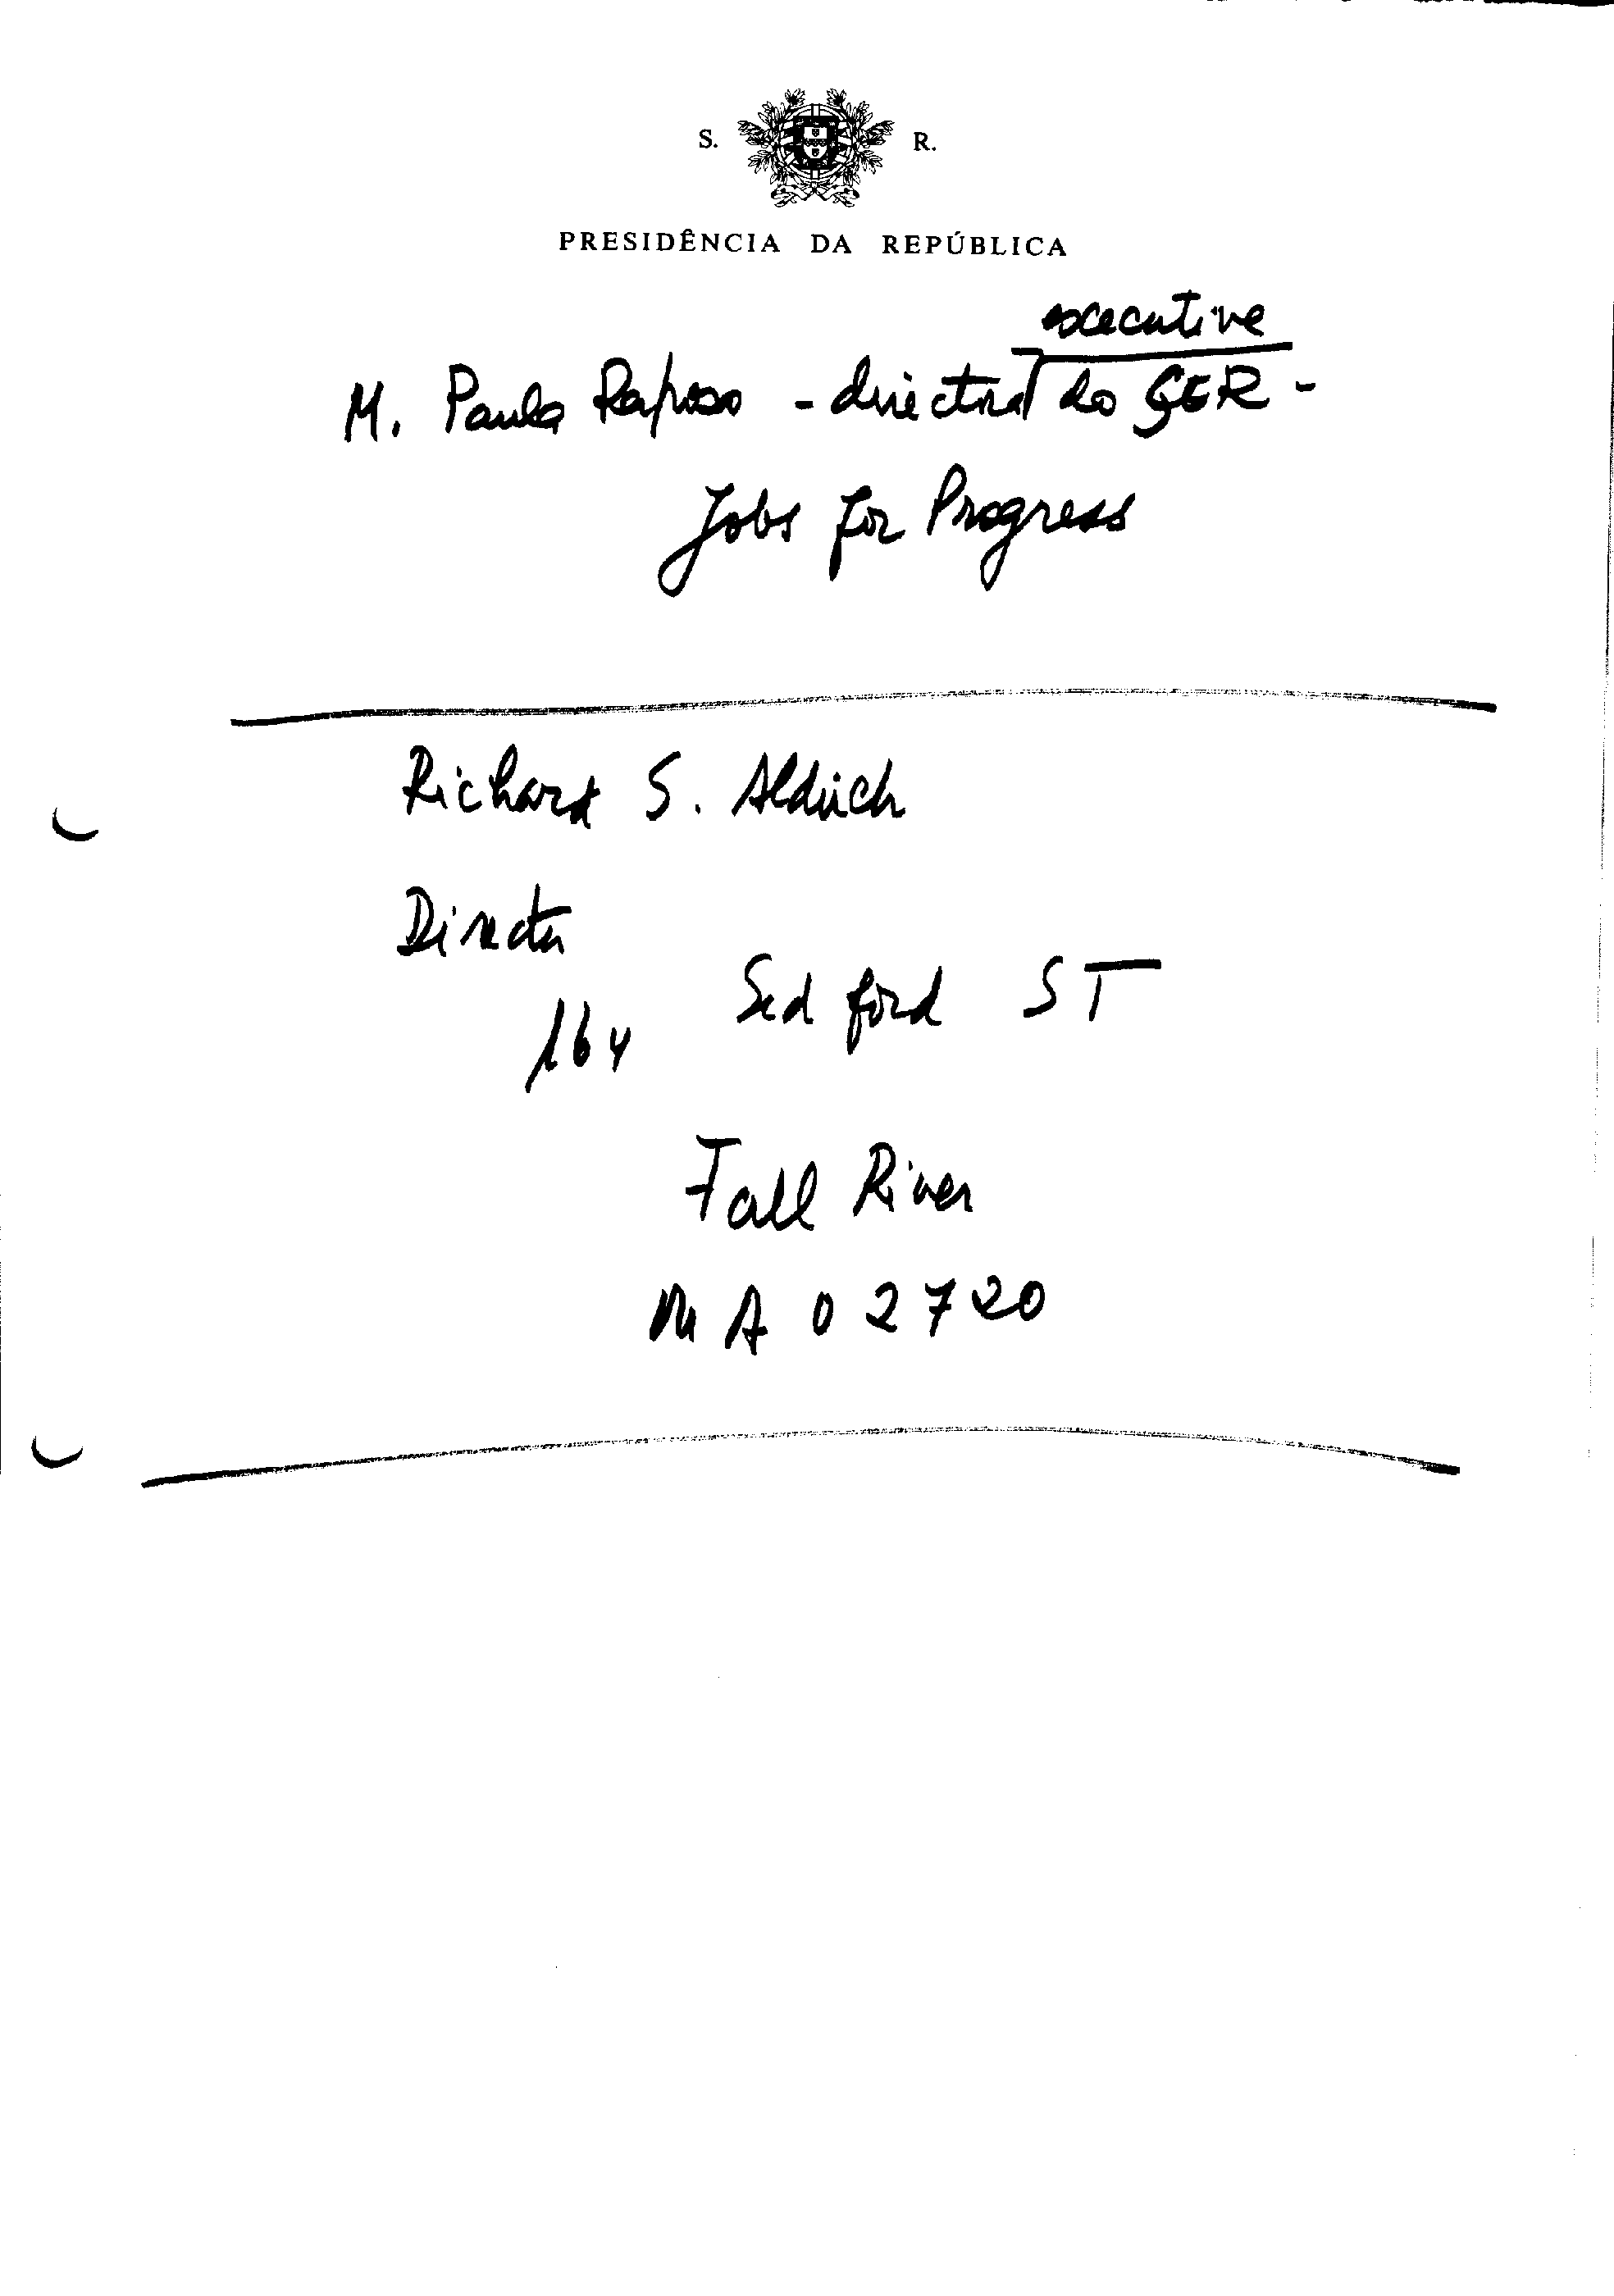 S. R.
PRESIDÊNCIA DA REPÚBLICA
executive
M. Paula Raposo - directora do SER -
Jobs for Progress
Richard S. Aldrich
Director
164 Sedford ST
Fall River
MA 02720